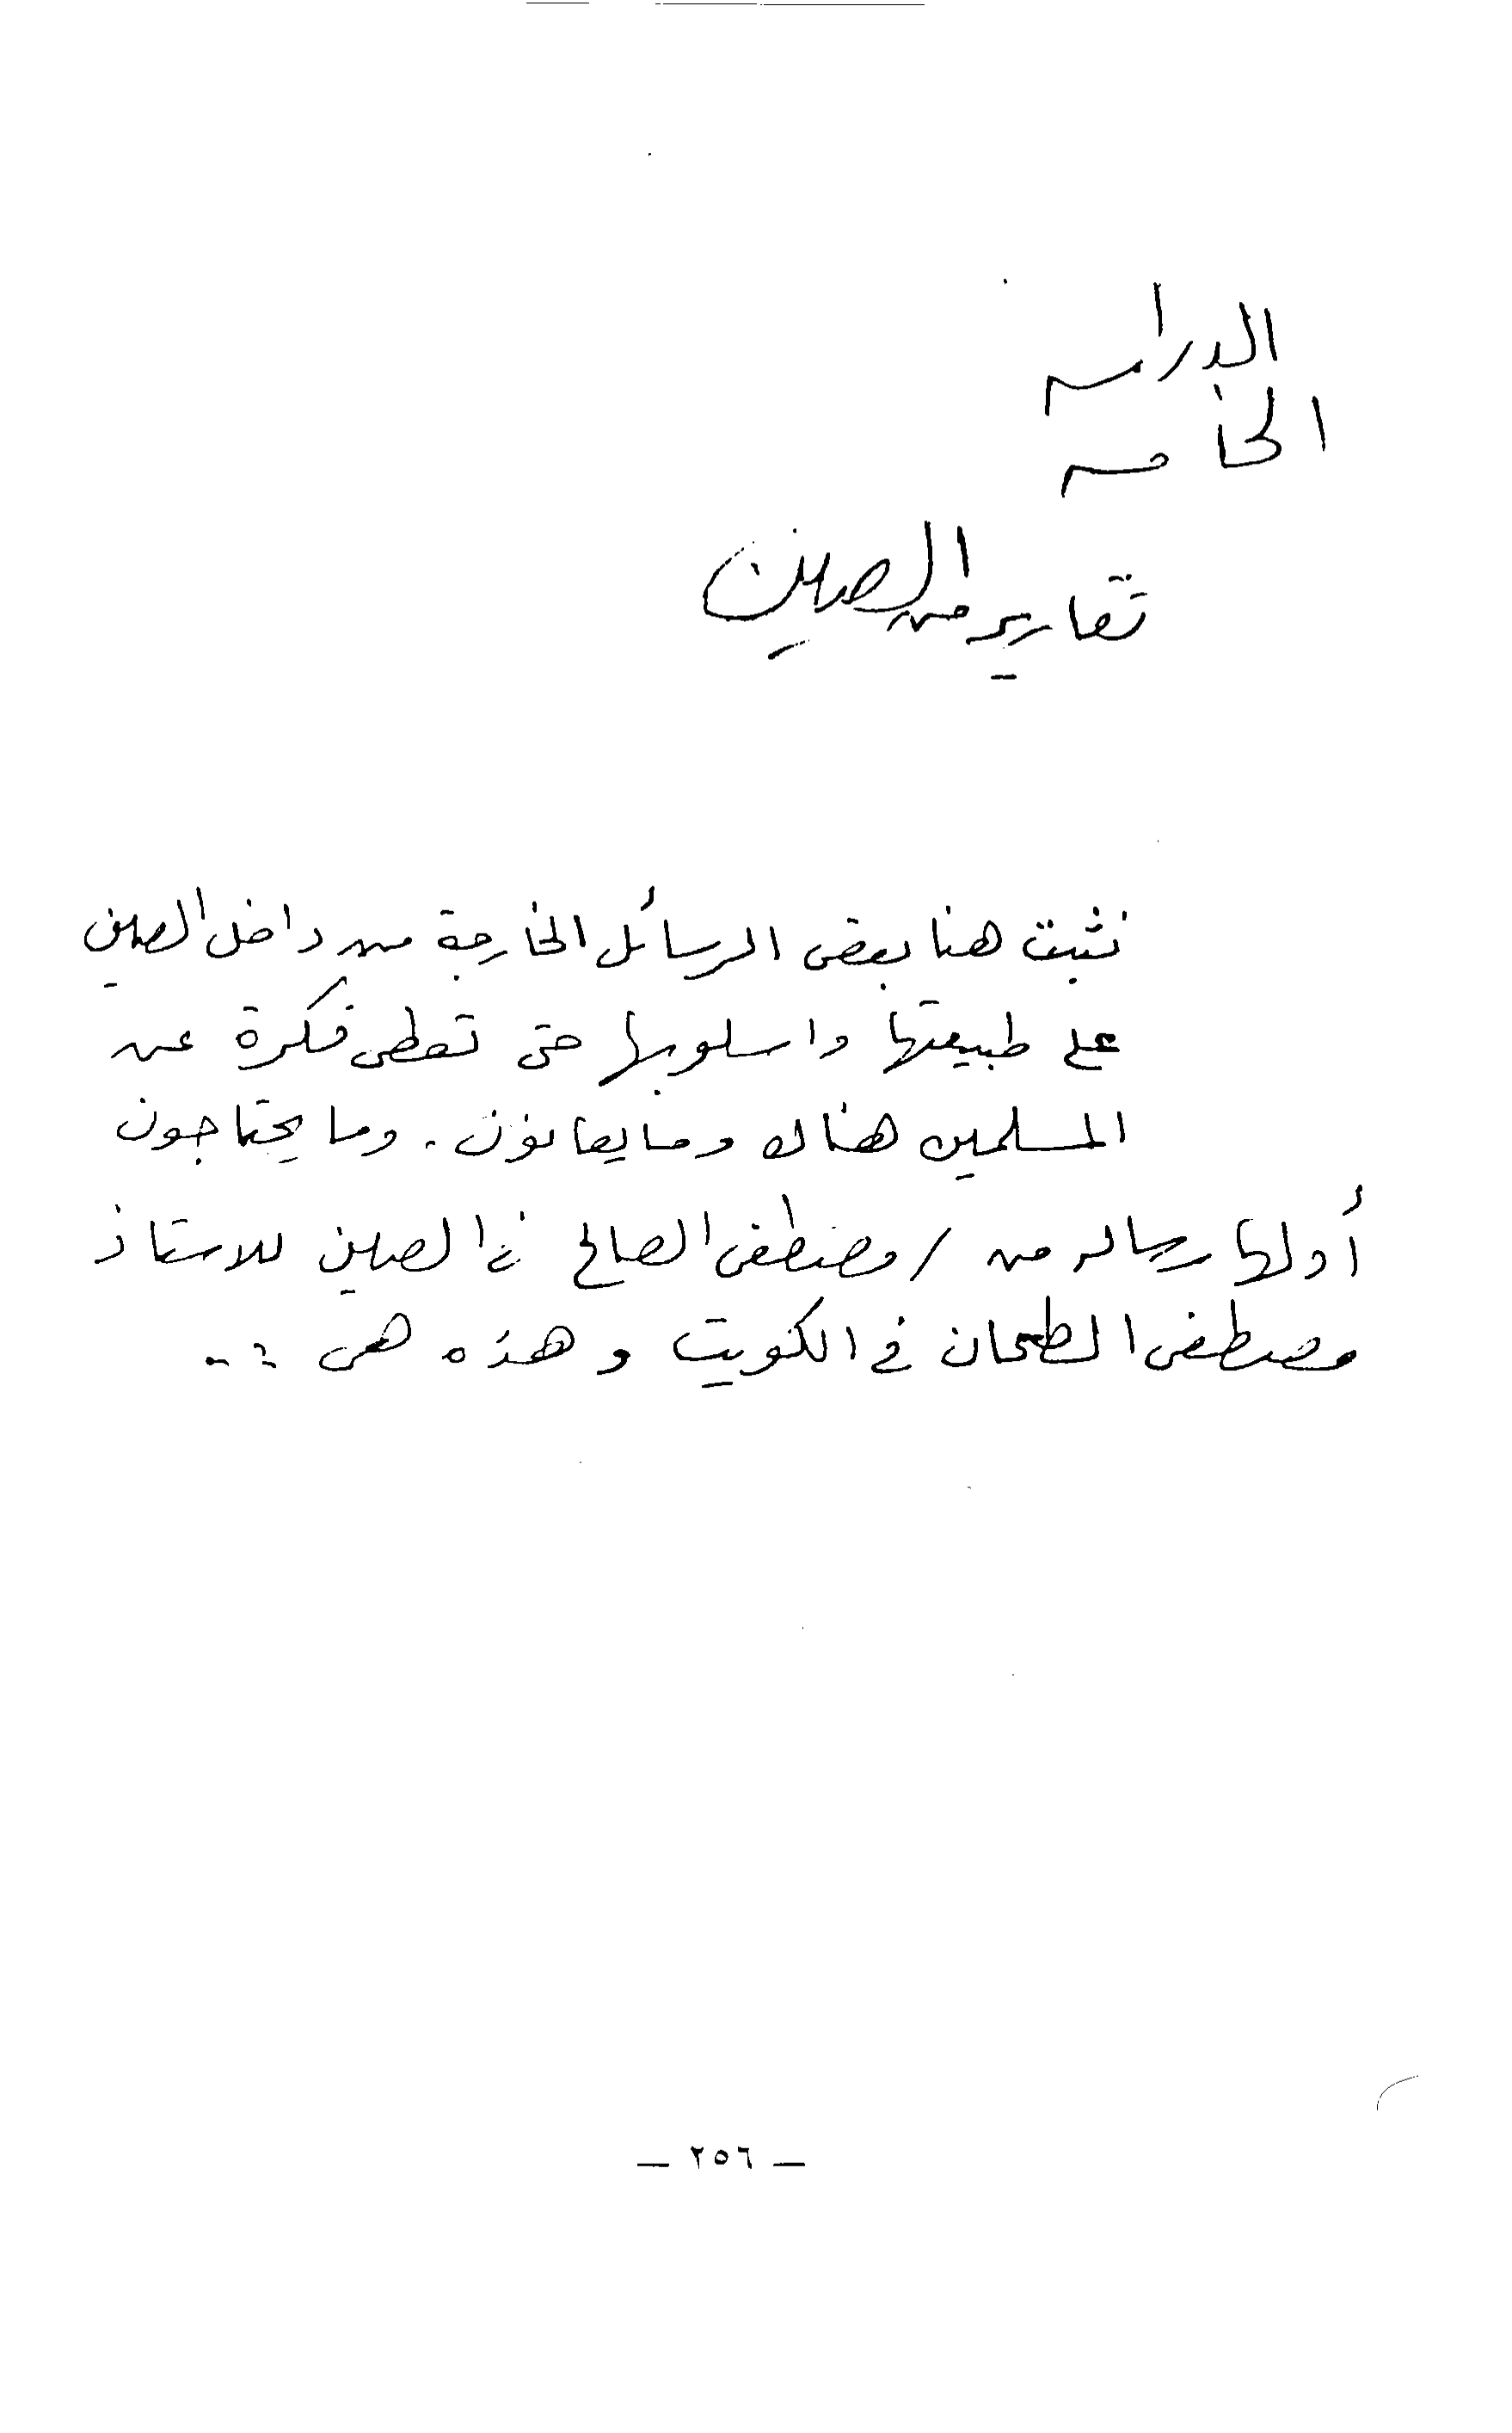 الدراسه
الخامسه
تقارير من الصين
نثبت هنا بعض الرسائل الخارجة من داخل الصين
على طبيعتها واسلوبها حتى تعطى فكرة عن
المسلمين هناك وما يعانون . وما يحتاجون
أولها رساله من / مصطفى الصالح في الصين للاستاذ
مصطفى الطحان في الكويت وهذه هى :..
— ٢٥٦ —